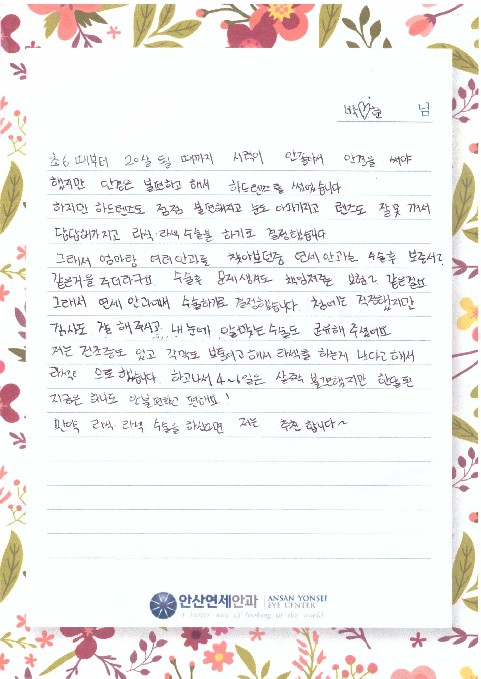 박♡훈 님
초6 때부터 20살 될 때까지 시력이 안좋아서 안경을 써야
했지만 안경은 불편하고 해서 하드렌즈를 썼었습니다
하지만 하드렌즈도 점점 불편해지고 눈도 아파지고 렌즈도 잘못 껴서
답답해가지고 라식·라섹 수술을 하기로 결정했습니다
그래서 엄마랑 여러안과를 찾아보던중 연세안과는 수술후 보증서
같은거를 주더라구요 수술후 문제생겨도 책임져주는 보험 같은걸요
그래서 연세안과에서 수술하기로 결정했습니다. 처음에는 걱정했지만
검사도 잘 해주시고 내 눈에 알맞는 수술도 권유해 주셨어요
저는 건조증도 있고 각막도 보통이고 해서 라섹을 하는게 낫다고 해서
라섹 으로 했습니다. 하고나서 4~5일은 살짝 불편했지만 한달된
지금은 하나도 안불편하고 편해요!
만약 라식·라섹 수술을 하신다면 저는 추천합니다~
안산연세안과 ANSAN YONSEI
EYE CENTER
A better way of looking at the world
안산연세안과 ANSAN YONSEI
EYE CENTER